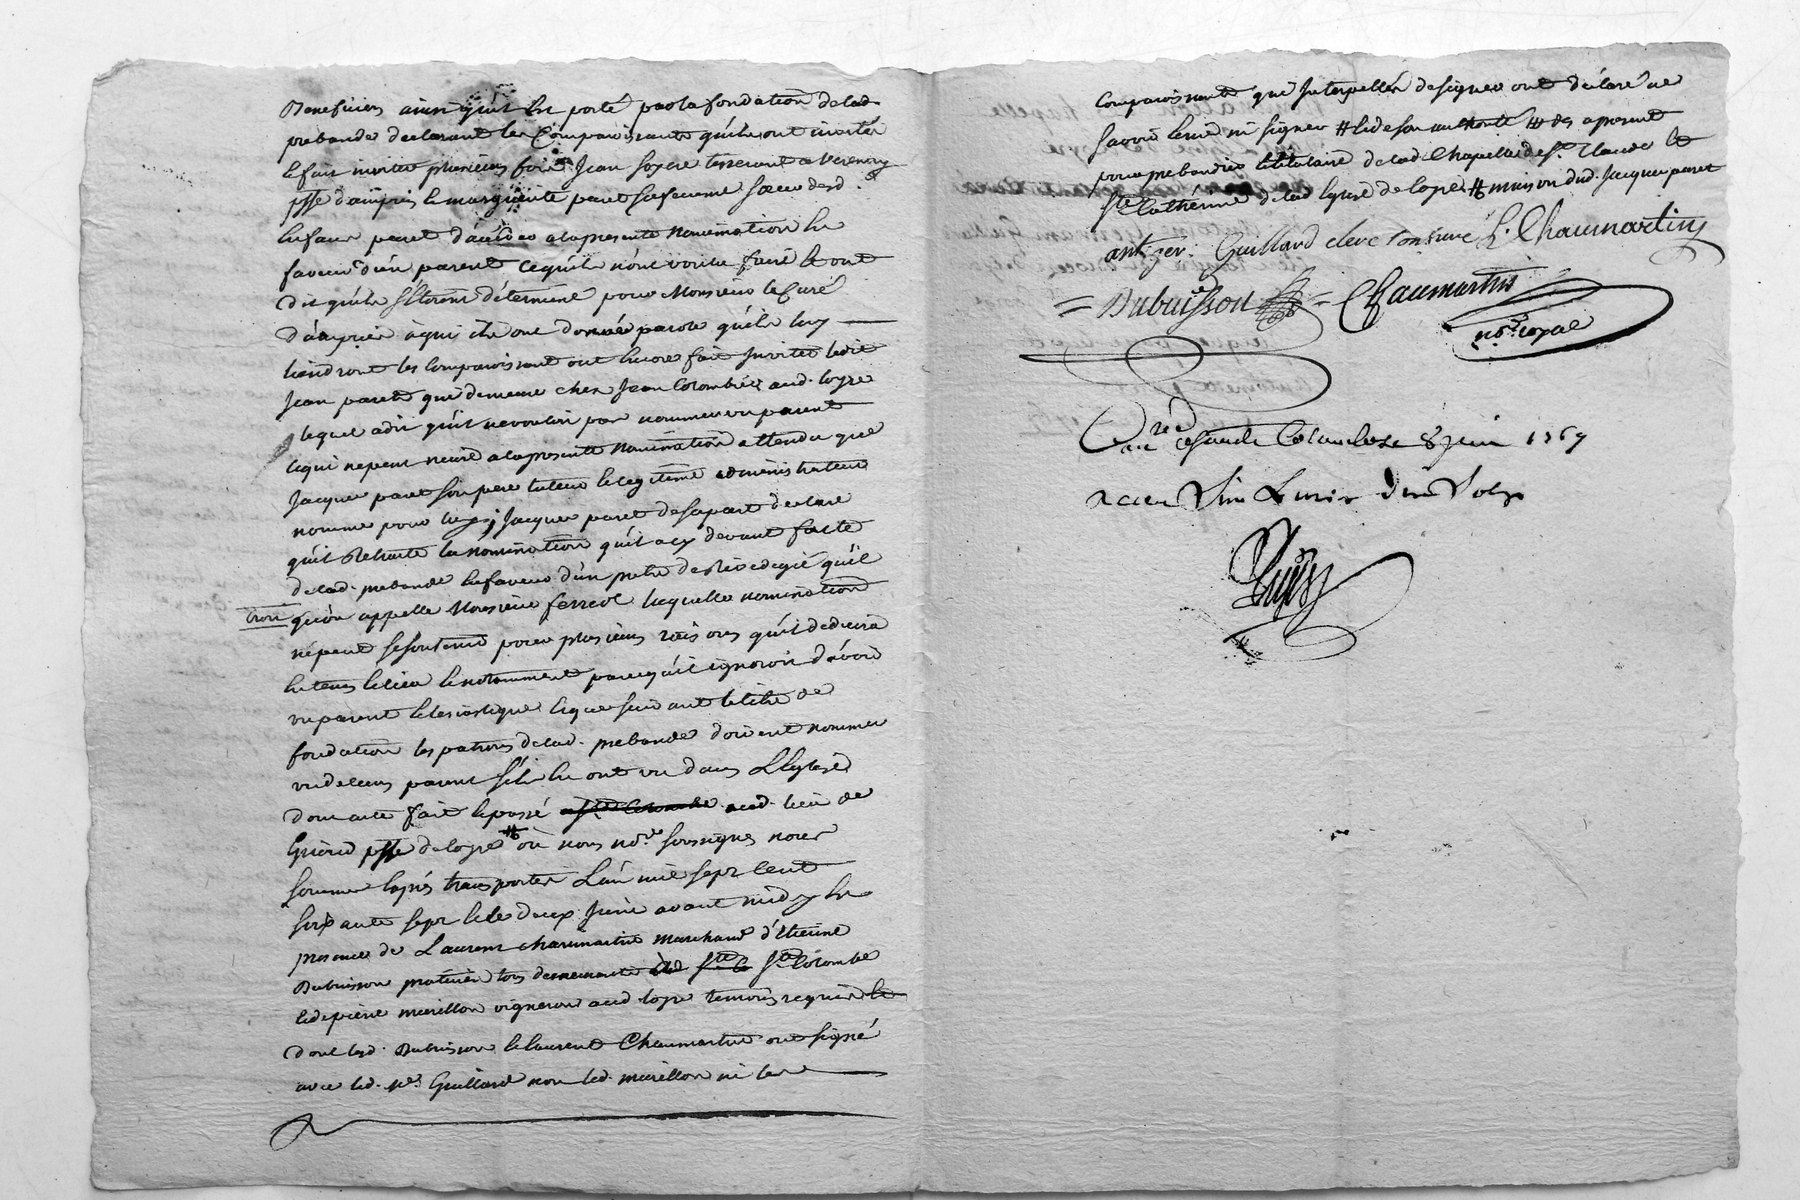 Beneficiers ainsy qu'il Est porté par la fondation delad.
prebande declarant les Comparoissants qu'ils ont invités
& fait inviter plusieurs fois Jean tisserant a Verenay
psse d'ampuis & margueritte paret sa femme soeur dud.
paret d'acceder a la presente nomination En
faveur d'un parent ce qu'ils n'ont voulu faire & ont
dit qu'ils s'étoient déterminé pour Monsieur le Curé
d'ampuis à qui ils ont donné parole qu'ils luy
tiendront les comparoissant ont Encore fait Inviter ledit
Jean paret qui demeure chez Jean Colombier aud. loyre
lequel a dit qu'il ne vouloit pas nommer un parent
ce qui ne peut nuire a la presente nomination attendu que
Jacque paret son pere tuteur & legitime administrateur
nomme pour luy Jacque paret de sa part declare
qu'il Retracte la nomination qu'il a cy devant faite
delad. prebande En faveur d'un pretre qu'il
trois qu'on appelle Monsieur ferreol laquelle nomination
ne peut se soutenir pour plusieurs raisons qu'il deduira
En tems & lieu & notamment parcequ'il ignoroit d'avoir
un parent Eclesiastique & que suivant le titre de
fondation les patrons delad. prebande doivent nommer
un de leurs parent s'ils En ont un dans L'Eglise
dont acte fait & passé a Ste Colombe aud. lieu de
psse de loyre # où nous nore. soussignés nous
sommes Exprés transportés L'an mil sept Cent
soixante sept & le deux Juin avant midy En
presence de Laurent chaumartin marchand d'Etienne
Dubuisson praticien tous demeurants Ste Colombe
& de pierre murillon vigneron aud loyre temoins requis &
dont lesd. Dubuisson & laurent Chaumartin ont signé
avec led. sr. Guillard non led. murillon ni les
Comparoissants qui Interpellés de signer ont déclaré ne
savoir Ecrire ni signer # & de son authorité # des a present
pour prebandier & titulaire delad Chapelle de St. Claude &
Ste Catherine de lad Eglise de loyre # maison dud. Jacque paret
ant. jer. Guillard clerc tonsuré L. Chaumartin
= Dubuisson = Chaumartin
nore. royal
8 juin 1767